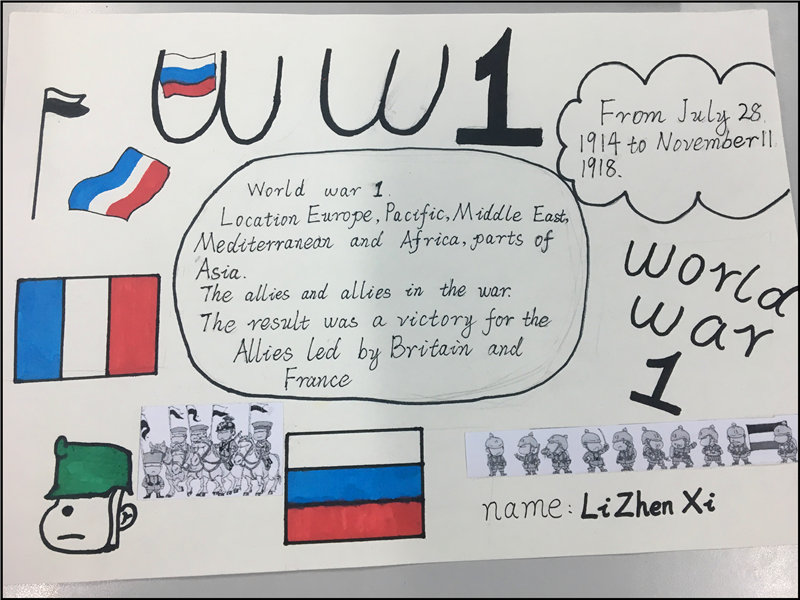 WW1
From July 28
1914 to November 11
1918.
World war 1.
Location Europe, Pacific, Middle East,
Mediterranean and Africa, parts of
Asia.
The allies and allies in the war.
The result was a victory for the
Allies led by Britain and
France
World
War
1
name: Li Zhen Xi